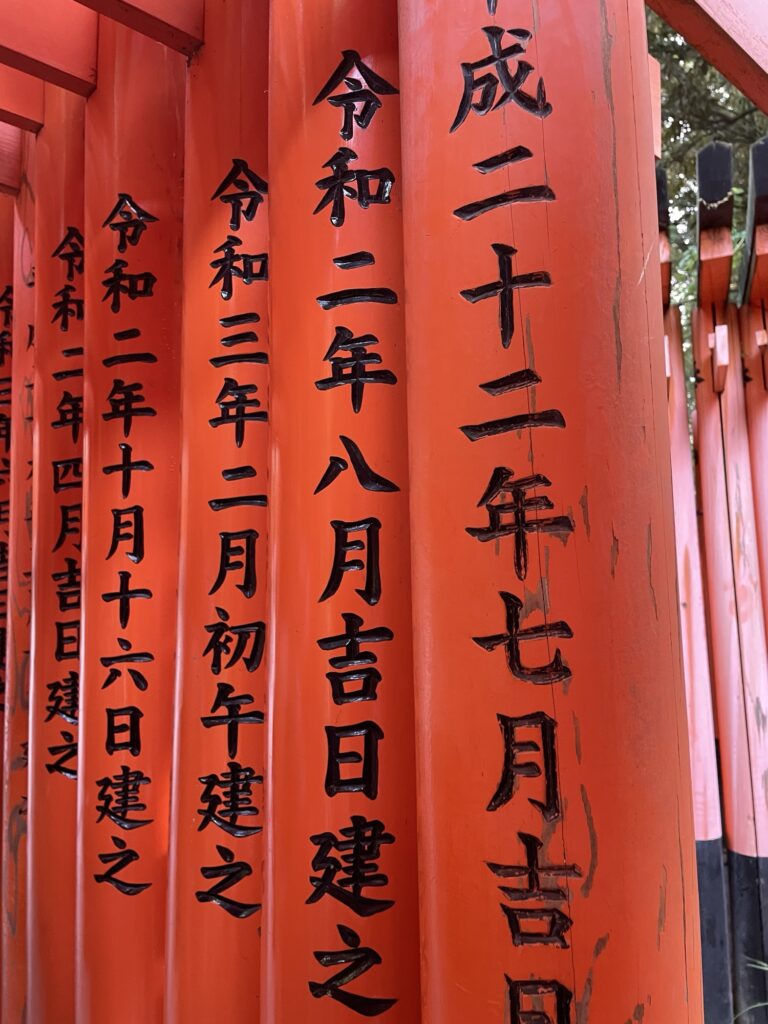 成二十二年七月吉日
令和二年八月吉日建之
令和三年二月初午建之
令和二年十月十六日建之
令和二年四月吉日建之